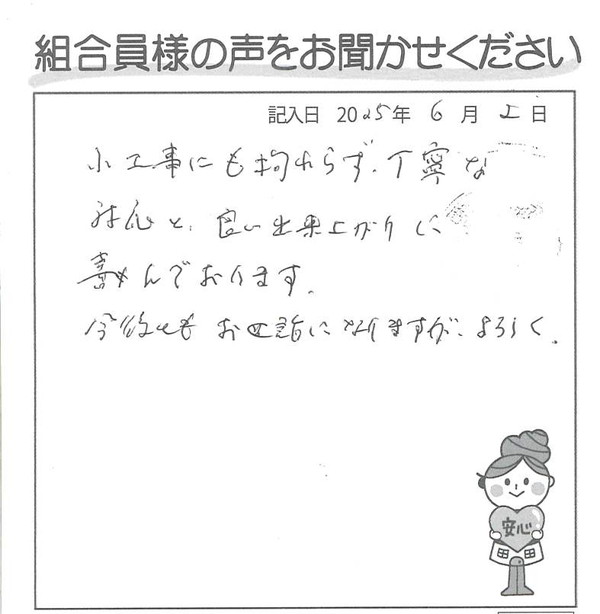 組合員様の声をお聞かせください
記入日 2025年 6月 2日
小工事にも拘わらず、丁寧な
対応と、良い出来上がりに
喜んでおります。
今後共お世話になりますが、よろしく。
安心